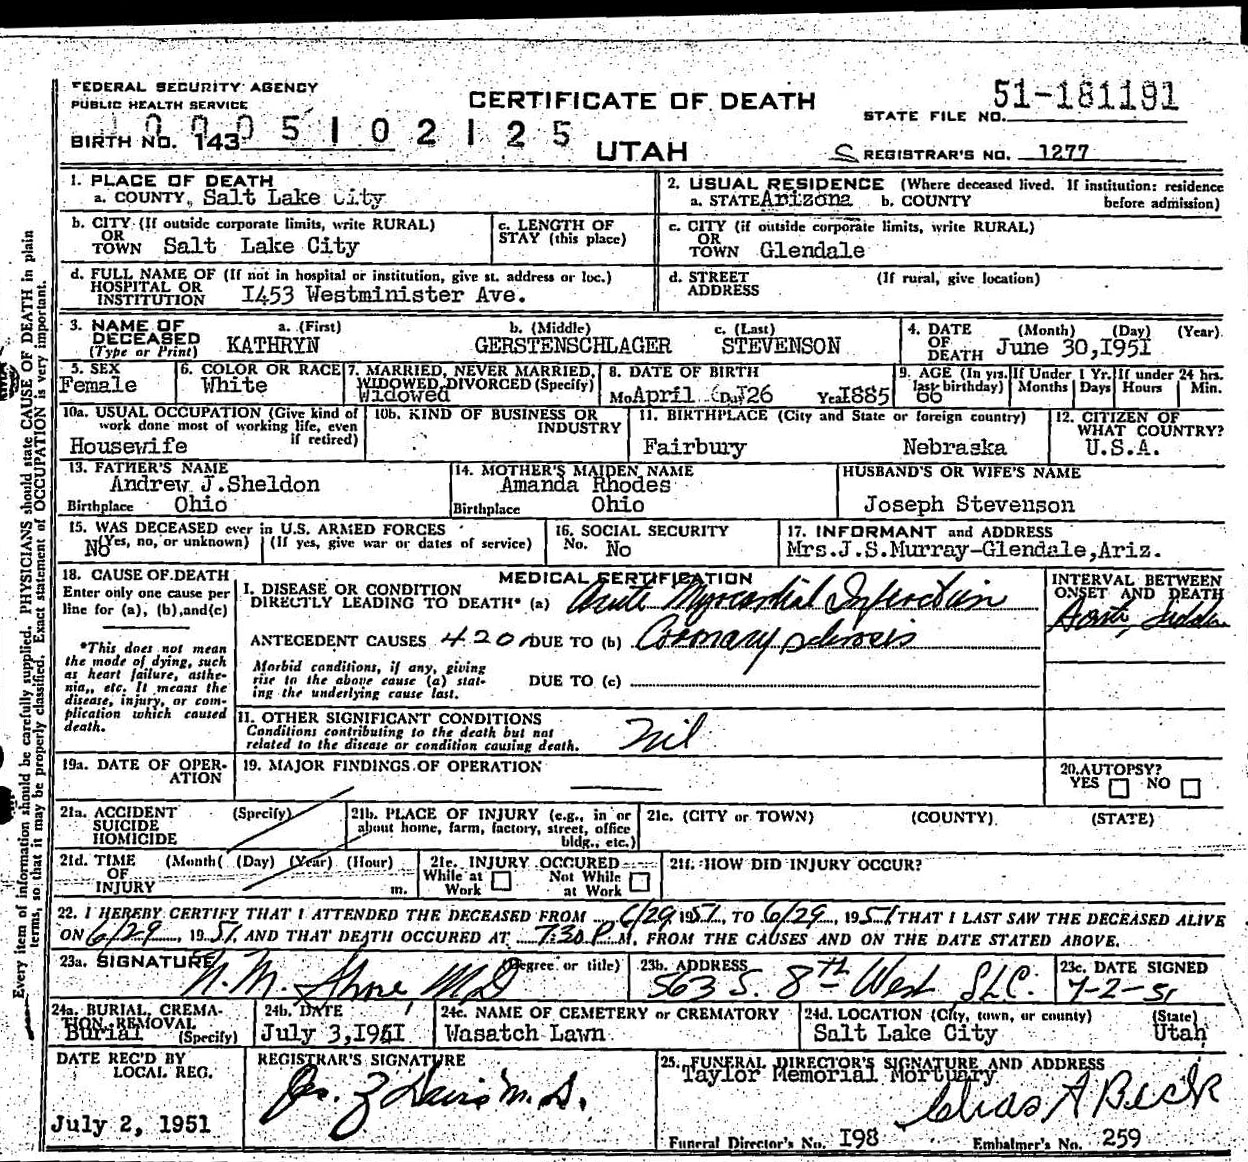 FEDERAL SECURITY AGENCY
PUBLIC HEALTH SERVICE
CERTIFICATE OF DEATH
STATE FILE NO. 51-181191
BIRTH NO. 143 0005102125
UTAH
REGISTRAR'S NO. 1277
Every item of information should be carefully supplied. PHYSICIANS should state CAUSE OF DEATH in plain
terms, so that it may be properly classified. Exact statement of OCCUPATION is very important.
1. PLACE OF DEATH
a. COUNTY, Salt Lake City
2. USUAL RESIDENCE (Where deceased lived. If institution: residence
a. STATE Arizona b. COUNTY before admission)
b. CITY (If outside corporate limits, write RURAL)
OR
TOWN Salt Lake City
c. LENGTH OF
STAY (this place)
c. CITY (if outside corporate limits, write RURAL)
OR
TOWN Glendale
d. FULL NAME OF (If not in hospital or institution, give st. address or loc.)
HOSPITAL OR
INSTITUTION I453 Westminister Ave.
d. STREET (If rural, give location)
ADDRESS
3. NAME OF a. (First) b. (Middle) c. (Last)
DECEASED
(Type or Print) KATHRYN GERSTENSCHLAGER STEVENSON
4. DATE (Month) (Day) (Year)
OF
DEATH June 30,I951
5. SEX
Female
6. COLOR OR RACE
White
7. MARRIED, NEVER MARRIED,
WIDOWED, DIVORCED (Specify)
Widowed
8. DATE OF BIRTH
Mo April Day 26 Yea I885
9. AGE (In yrs. If Under 1 Yr. If under 24 hrs.
last birthday) Months Days Hours Min.
66
10a. USUAL OCCUPATION (Give kind of
work done most of working life, even
if retired)
Housewife
10b. KIND OF BUSINESS OR
INDUSTRY
11. BIRTHPLACE (City and State or foreign country)
Fairbury Nebraska
12. CITIZEN OF
WHAT COUNTRY?
U.S.A.
13. FATHER'S NAME
Andrew J.Sheldon
Birthplace Ohio
14. MOTHER'S MAIDEN NAME
Amanda Rhodes
Birthplace Ohio
HUSBAND'S OR WIFE'S NAME
Joseph Stevenson
15. WAS DECEASED ever in U.S. ARMED FORCES
No (Yes, no, or unknown) (If yes, give war or dates of service)
16. SOCIAL SECURITY
No. No
17. INFORMANT and ADDRESS
Mrs.J.S.Murray-Glendale,Ariz.
18. CAUSE OF DEATH
Enter only one cause per
line for (a), (b), and (c)
*This does not mean
the mode of dying, such
as heart failure, asthe-
nia,, etc. It means the
disease, injury, or com-
plication which caused
death.
MEDICAL CERTIFICATION
I. DISEASE OR CONDITION
DIRECTLY LEADING TO DEATH* (a) Acute Myocardial Infarction
ANTECEDENT CAUSES 420 DUE TO (b) Coronary sclerosis
Morbid conditions, if any, giving
rise to the above cause (a) stat-
ing the underlying cause last.
DUE TO (c)
INTERVAL BETWEEN
ONSET AND DEATH
II. OTHER SIGNIFICANT CONDITIONS
Conditions contributing to the death but not
related to the disease or condition causing death.
nil
19a. DATE OF OPER-
ATION
19. MAJOR FINDINGS OF OPERATION
20. AUTOPSY?
YES NO
21a. ACCIDENT (Specify)
SUICIDE
HOMICIDE
21b. PLACE OF INJURY (e.g., in or
about home, farm, factory, street, office
bldg., etc.)
21c. (CITY or TOWN) (COUNTY) (STATE)
21d. TIME (Month) (Day) (Year) (Hour)
OF
INJURY m.
21e. INJURY OCCURED
While at Not While
Work at Work
21f. HOW DID INJURY OCCUR?
22. I HEREBY CERTIFY THAT I ATTENDED THE DECEASED FROM 6/29, 1951, TO 6/29, 1951 THAT I LAST SAW THE DECEASED ALIVE
ON 6/29, 1951, AND THAT DEATH OCCURED AT 7:30 P.M. FROM THE CAUSES AND ON THE DATE STATED ABOVE.
23a. SIGNATURE (Degree or title)
MD
23b. ADDRESS
563 S. 8th West SLC.
23c. DATE SIGNED
7-2-51
24a. BURIAL, CREMA-
TION, REMOVAL
Burial (Specify)
24b. DATE
July 3,I951
24c. NAME OF CEMETERY or CREMATORY
Wasatch Lawn
24d. LOCATION (City, town, or county) (State)
Salt Lake City Utah
DATE REC'D BY
LOCAL REG.
July 2, 1951
REGISTRAR'S SIGNATURE
25. FUNERAL DIRECTOR'S SIGNATURE AND ADDRESS
Taylor Memorial Mortuary
Elias A Beck
Funeral Director's No. I98 Embalmer's No. 259